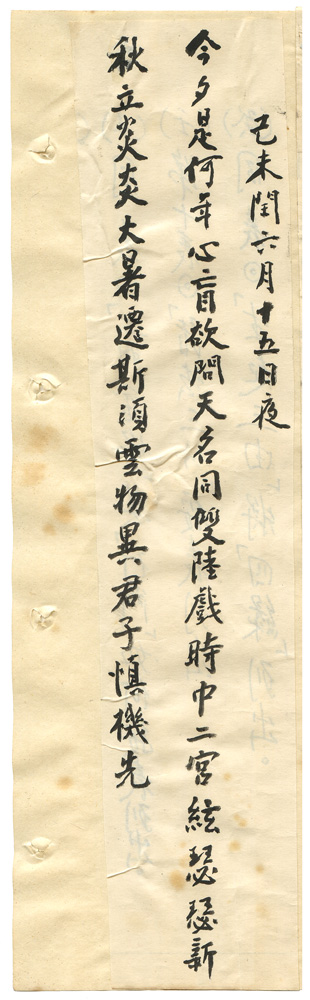 己未閏六月十五日夜
今夕是何年心盲欲問天名同雙陸戲時中二宮絃瑟瑟新
秋立炎炎大暑遷斯須雲物異君子慎機先